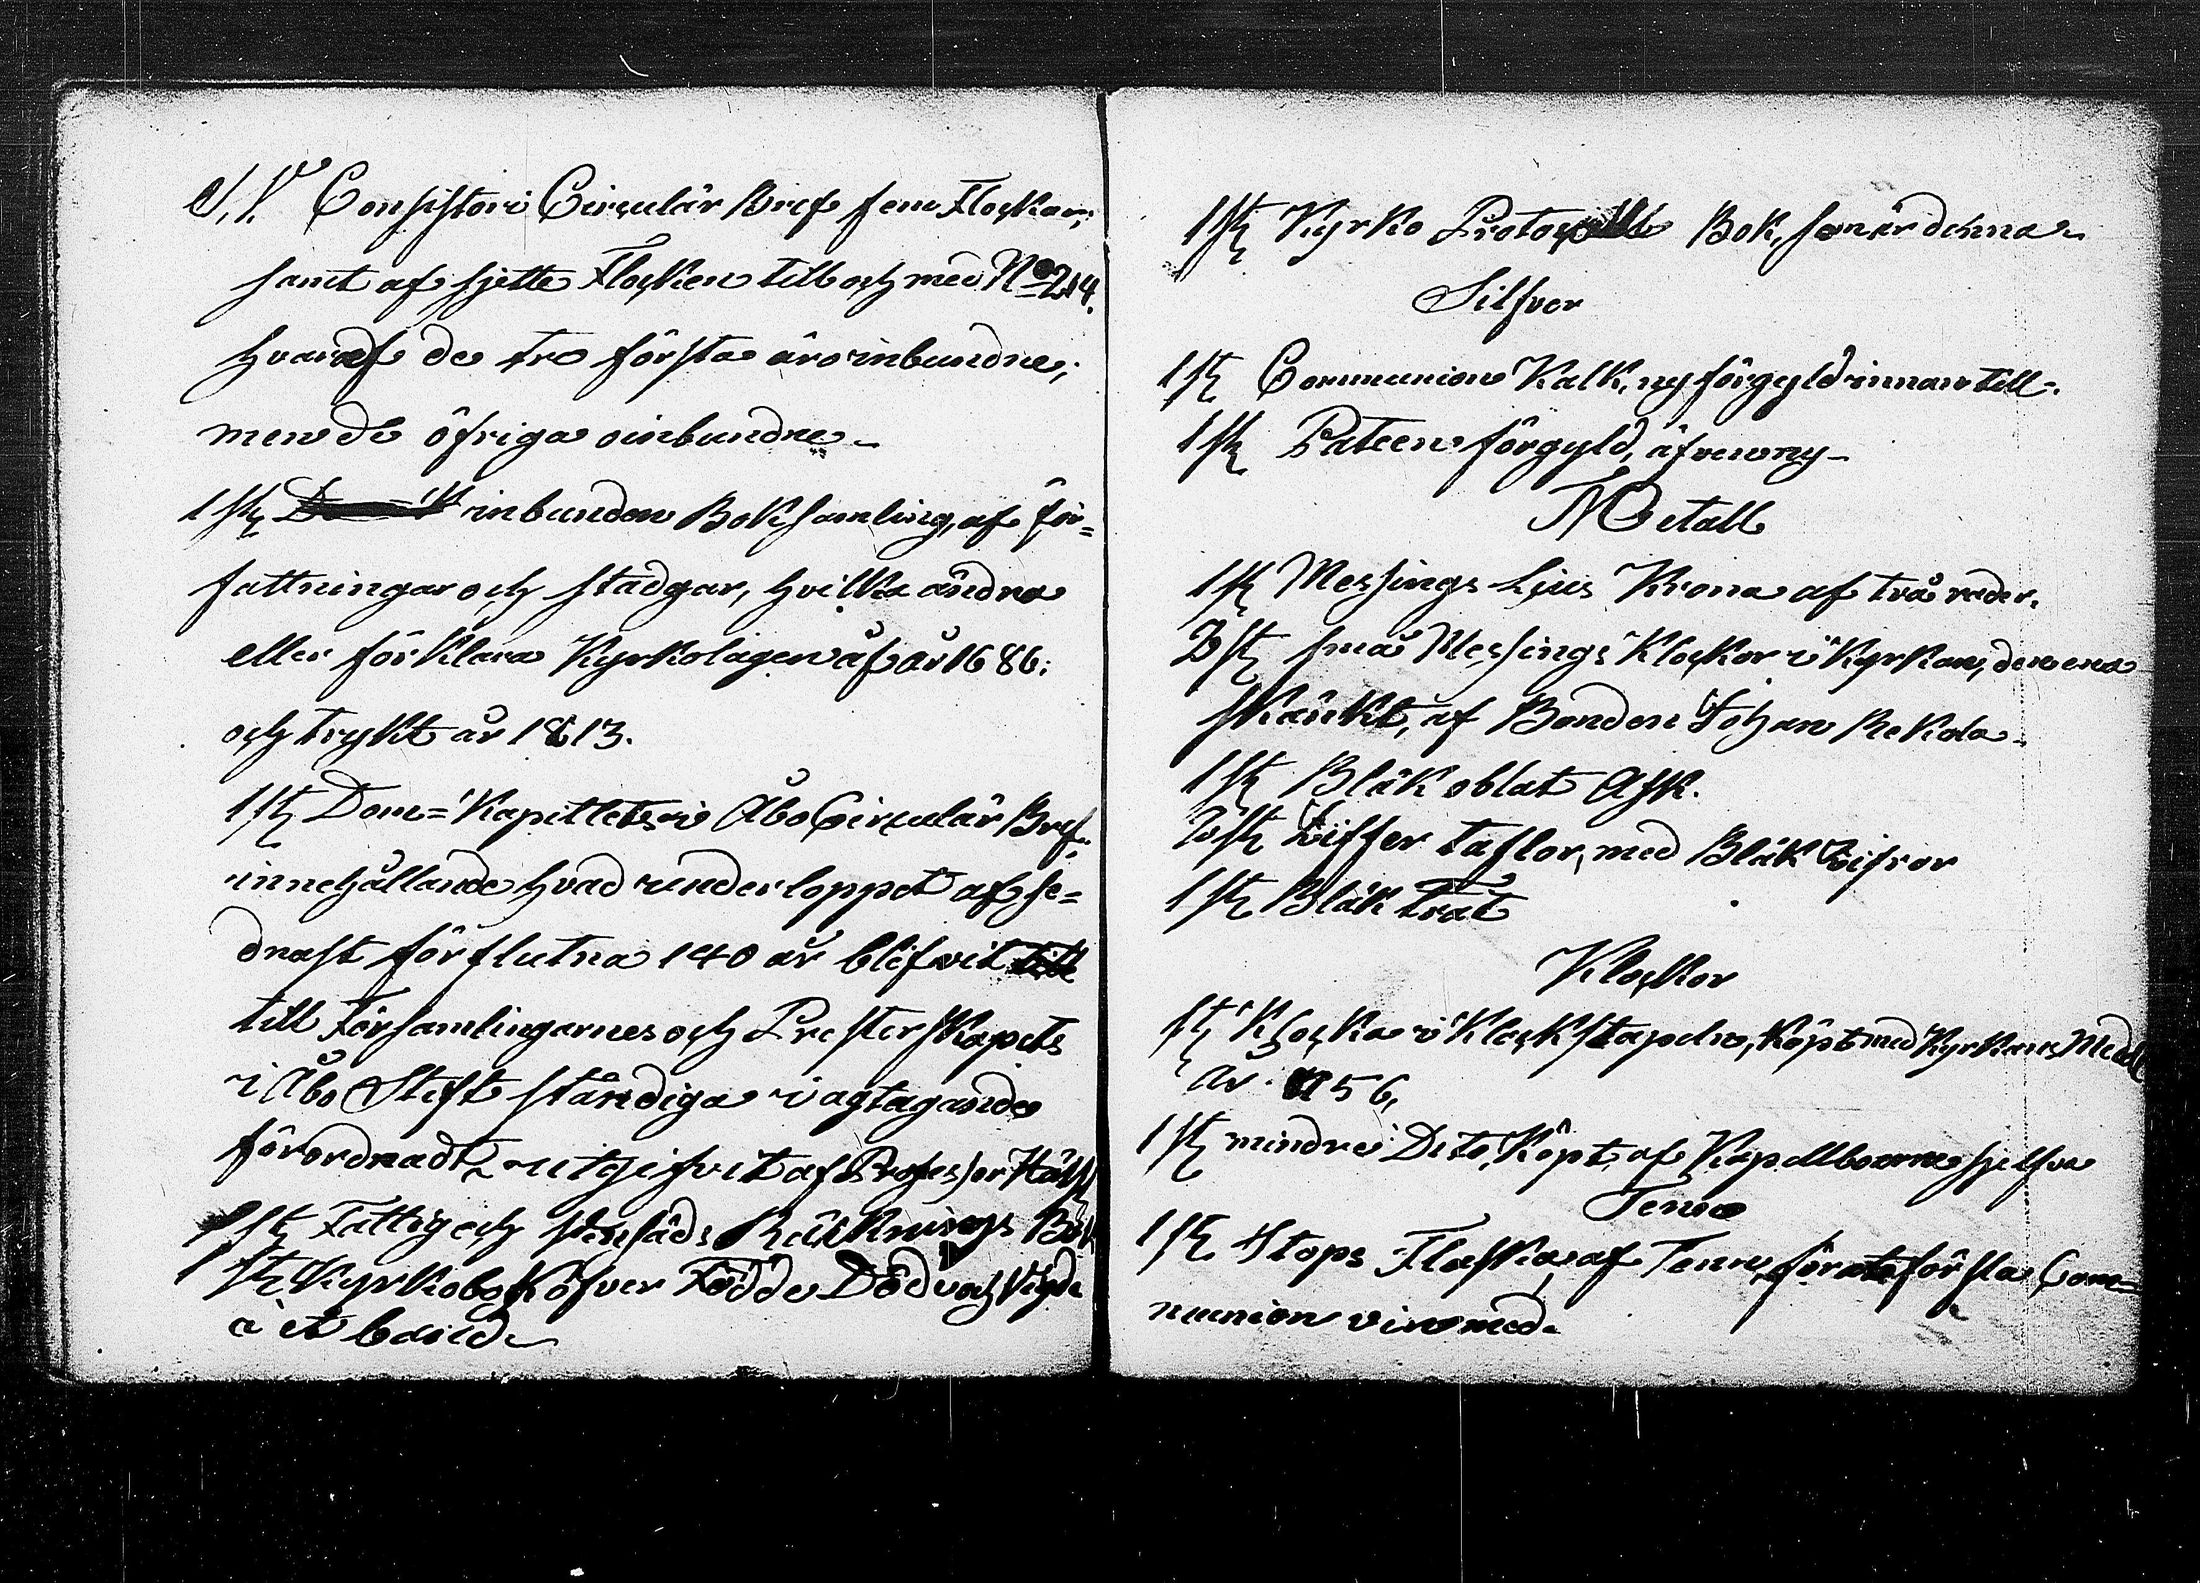 S. V. Consistorii Circulär Bref fem Flockar;
samt af sjette Flocken till och med No 214.
hvaraf de tre första äro inbundne;
men de öfriga oinbundne
1 st inbunden Bok samling af för=
fattningar och stadgar, hvilka ändra
eller förklara Kyrkolagen af år 1686;
och tryckt år 1813.
1 st Dom=Kapitlets i Åbo Circulär Bref.
innehållande hvad under loppet af se=
dnast förflutna 140 år blifvit
till Församlingarnes och Presterskapets
i Åbo Stift ständiga iagtagande
förordnadt utgifvit af Professor
1 st Fattig och Räknings Bok
1 st Kyrkobok öfver Födde Döde och Vigde
i et band
1 st Kyrko Protocolls Bok, som är denna
Silfver
1 st Communion Kalk, ny förgyld innan till.
1 st Pateen förgyld, äfven ny
Metall
1 st Messings Ljus Krona af två rader.
2 st små Messings Klockor i Kyrkan, den ena
skänkt, af Bonden Johan Rekola
1 st Bläk oblat Ask.
2 st Ziffer taflor, med Bläk Zifror
1 st Bläk Trat
Klockor
1 st Klocka i Klockstapeln, köpt med Kyrkans Medel
år 1756,
1 st mindre Dito, Köpt af Kapellboerne sjelfva
Tenn
1 st Stops Flaska, af Tenn, för att försla Com=
munion vin med.